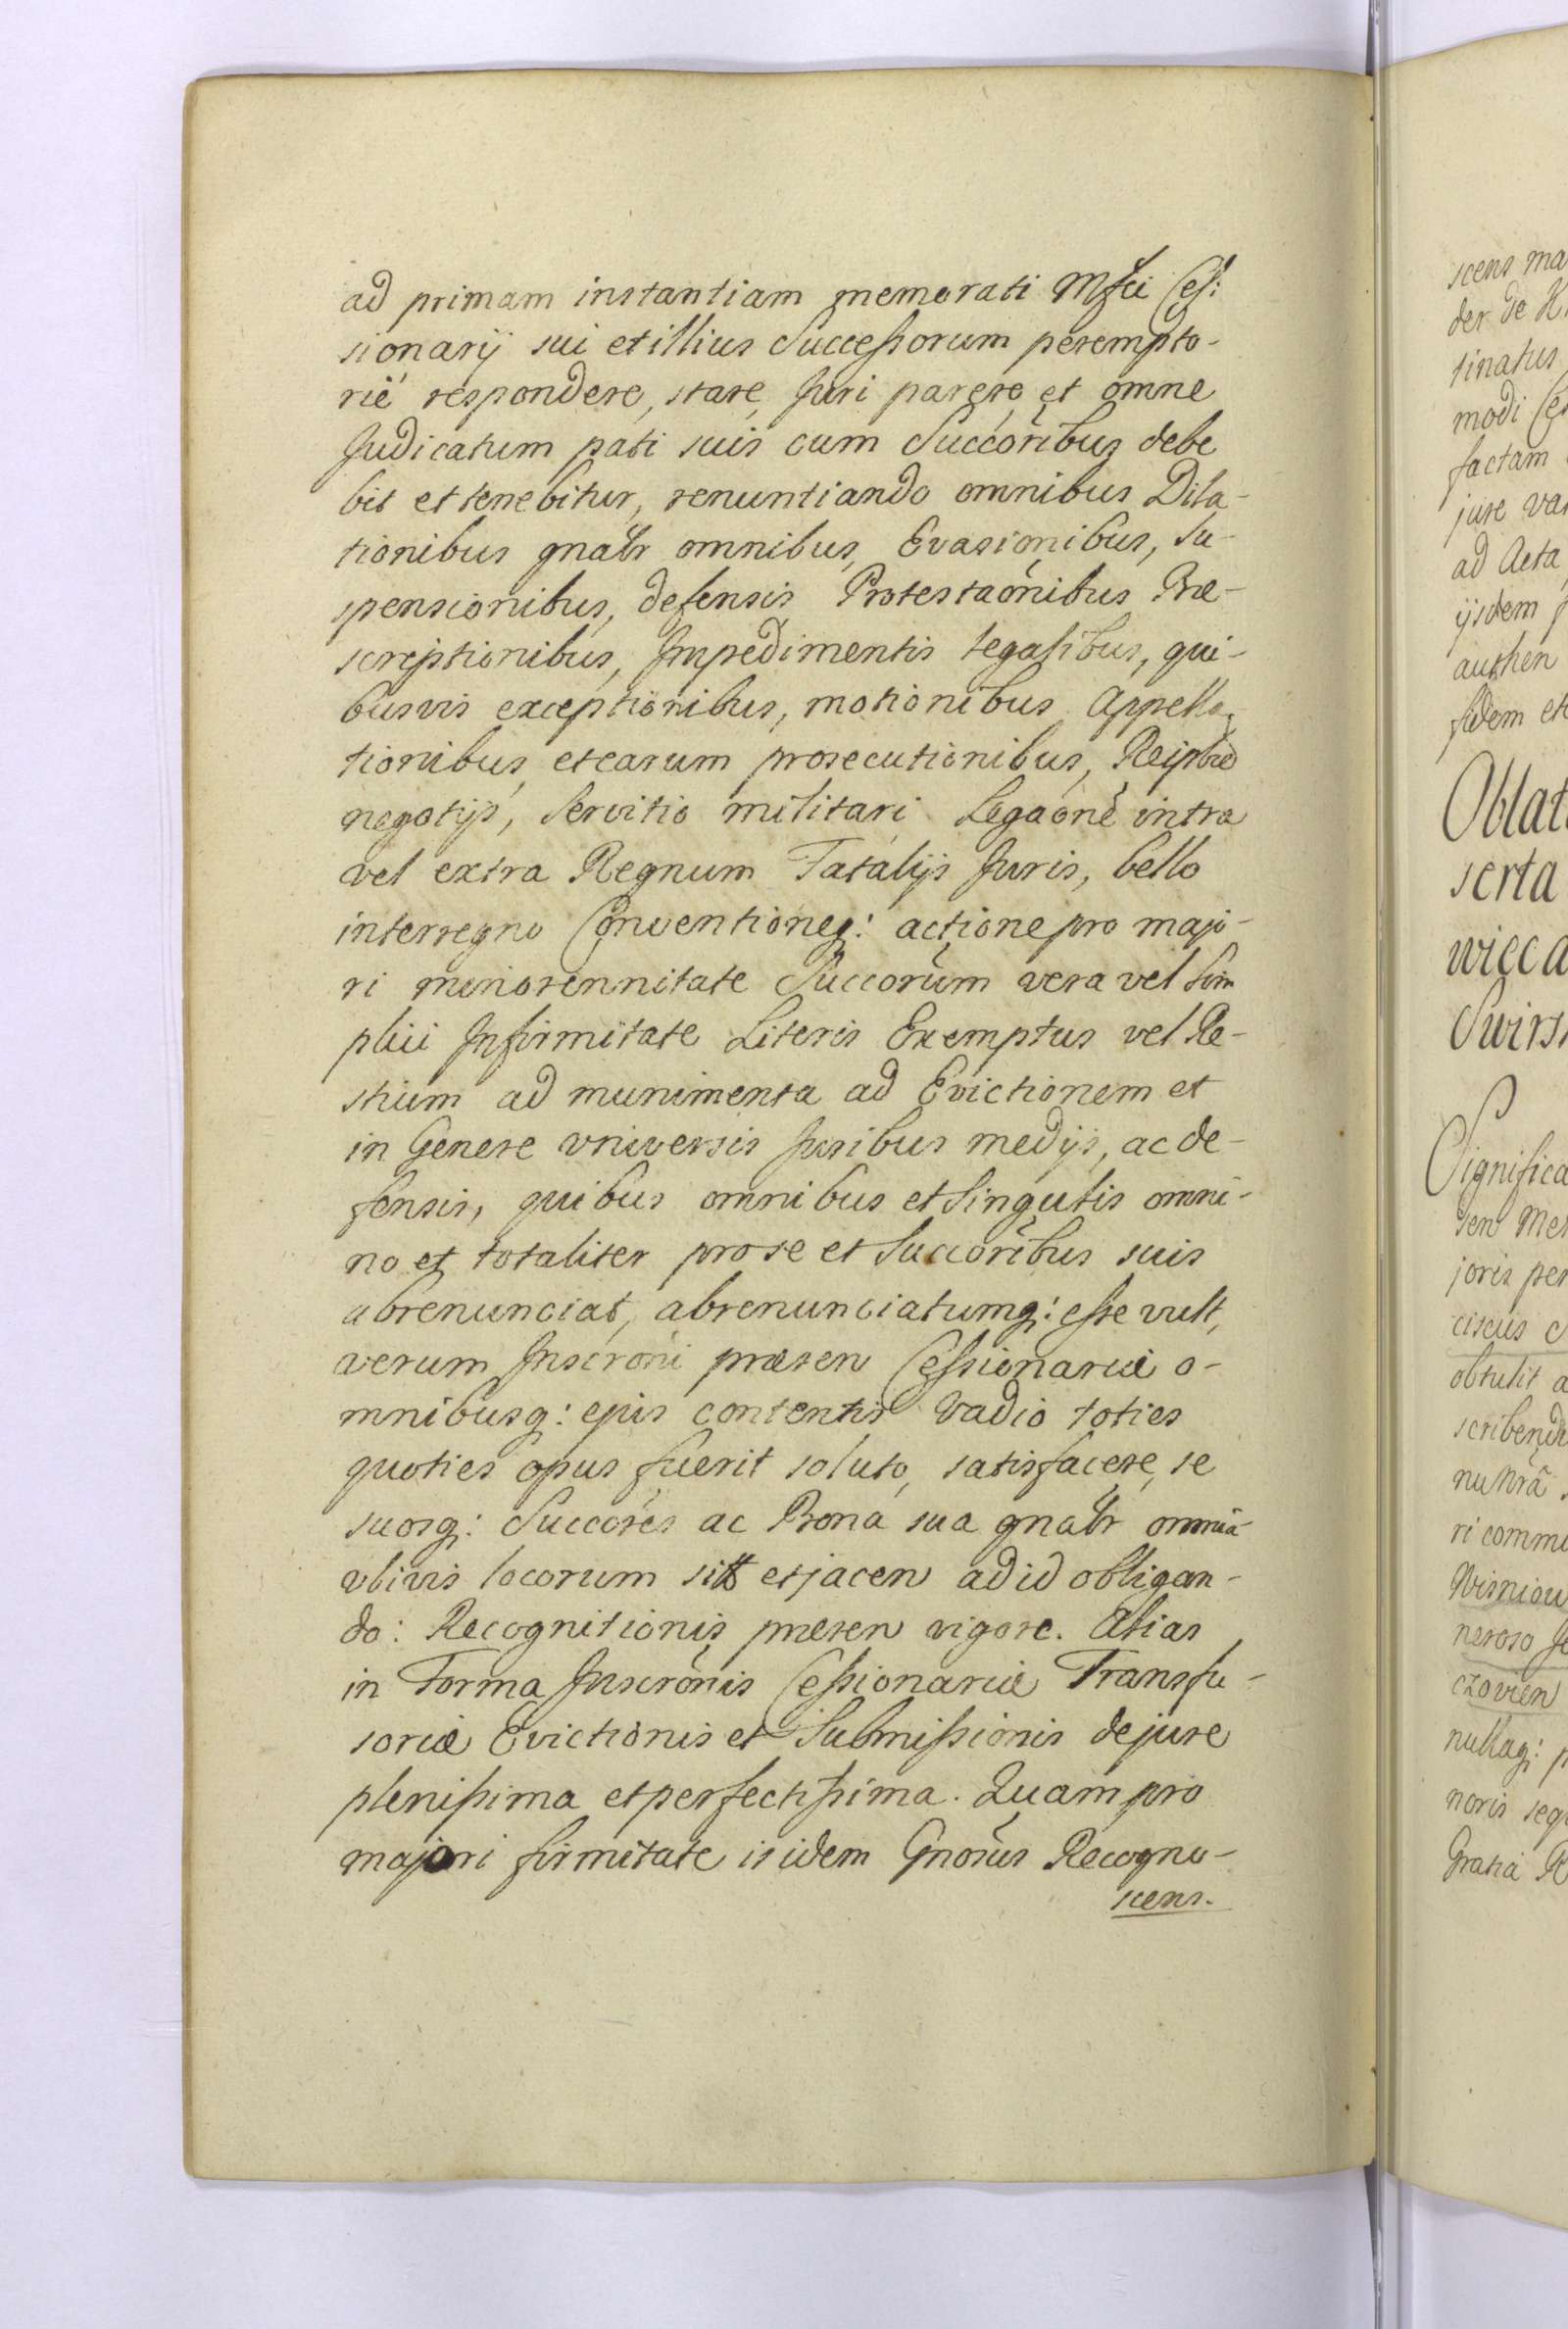 ad primam instantiam memorati Mfci Ces:
sionarij sui et illius Successorum perempto-
rie respondere, stare, Juri parere et omne
Judicatum pati suis cum Succoribus debe
bit et tenebitur, renuntiando omnibus Dila-
tionibus gnalr omnibus, Evasionibus, Su-
spensionibus, defensis Protestaonibus Præ-
scriptionibus, Impedimentis legalibus, qui-
busvis exceptionibus, motionibus Appella-
tionibus et earum prosecutionibus, Reipbcæ
negotijs, Servitio militari Legaone intra
vel extra Regnum Fatalijs Juris, bello
interregno Conventioneq: actione pro majo-
ri minorennitate Succorum vera vel Sim
plici Infirmitate Literis Exemptus vel Re-
stium ad munimenta ad Evictionem et
in Genere vniversis Juribus medijs, ac de-
fensis, quibus omnibus et Singulis omni-
no et totaliter pro se et Succoribus suis
abrenunciat, abrenunciatumq: esse vult,
verum Inscroni præsen Cessionariæ o-
mnibusq: ejus contentis Vadio toties
quoties opus fuerit soluto, satisfacere, se
suosq: Succores ac Bona sua gnalr omnia
vbivis locorum sit et jacen ad id obligan-
do: Recognitionis præsen vigore. Alias
in Forma Inscronis Cessionariæ Transfu-
soriæ Evictionis et Submissionis de jure
plenissima et perfectissima. Quam pro
majori firmitate is idem Gnosus Recogno-
scens.
scens ma
der de K
tinatus
modi Ces
factam
jure va
ad Acta
ijsdem
authen
fidem et
Oblat
serta
wicca
Swirs
Significa
sen Me
joris per
ciscus
obtulit a
scribend
nu Nrã
ri commu
Wisniow
neroso
czovien
nullaq: p
noris seq
Gratia